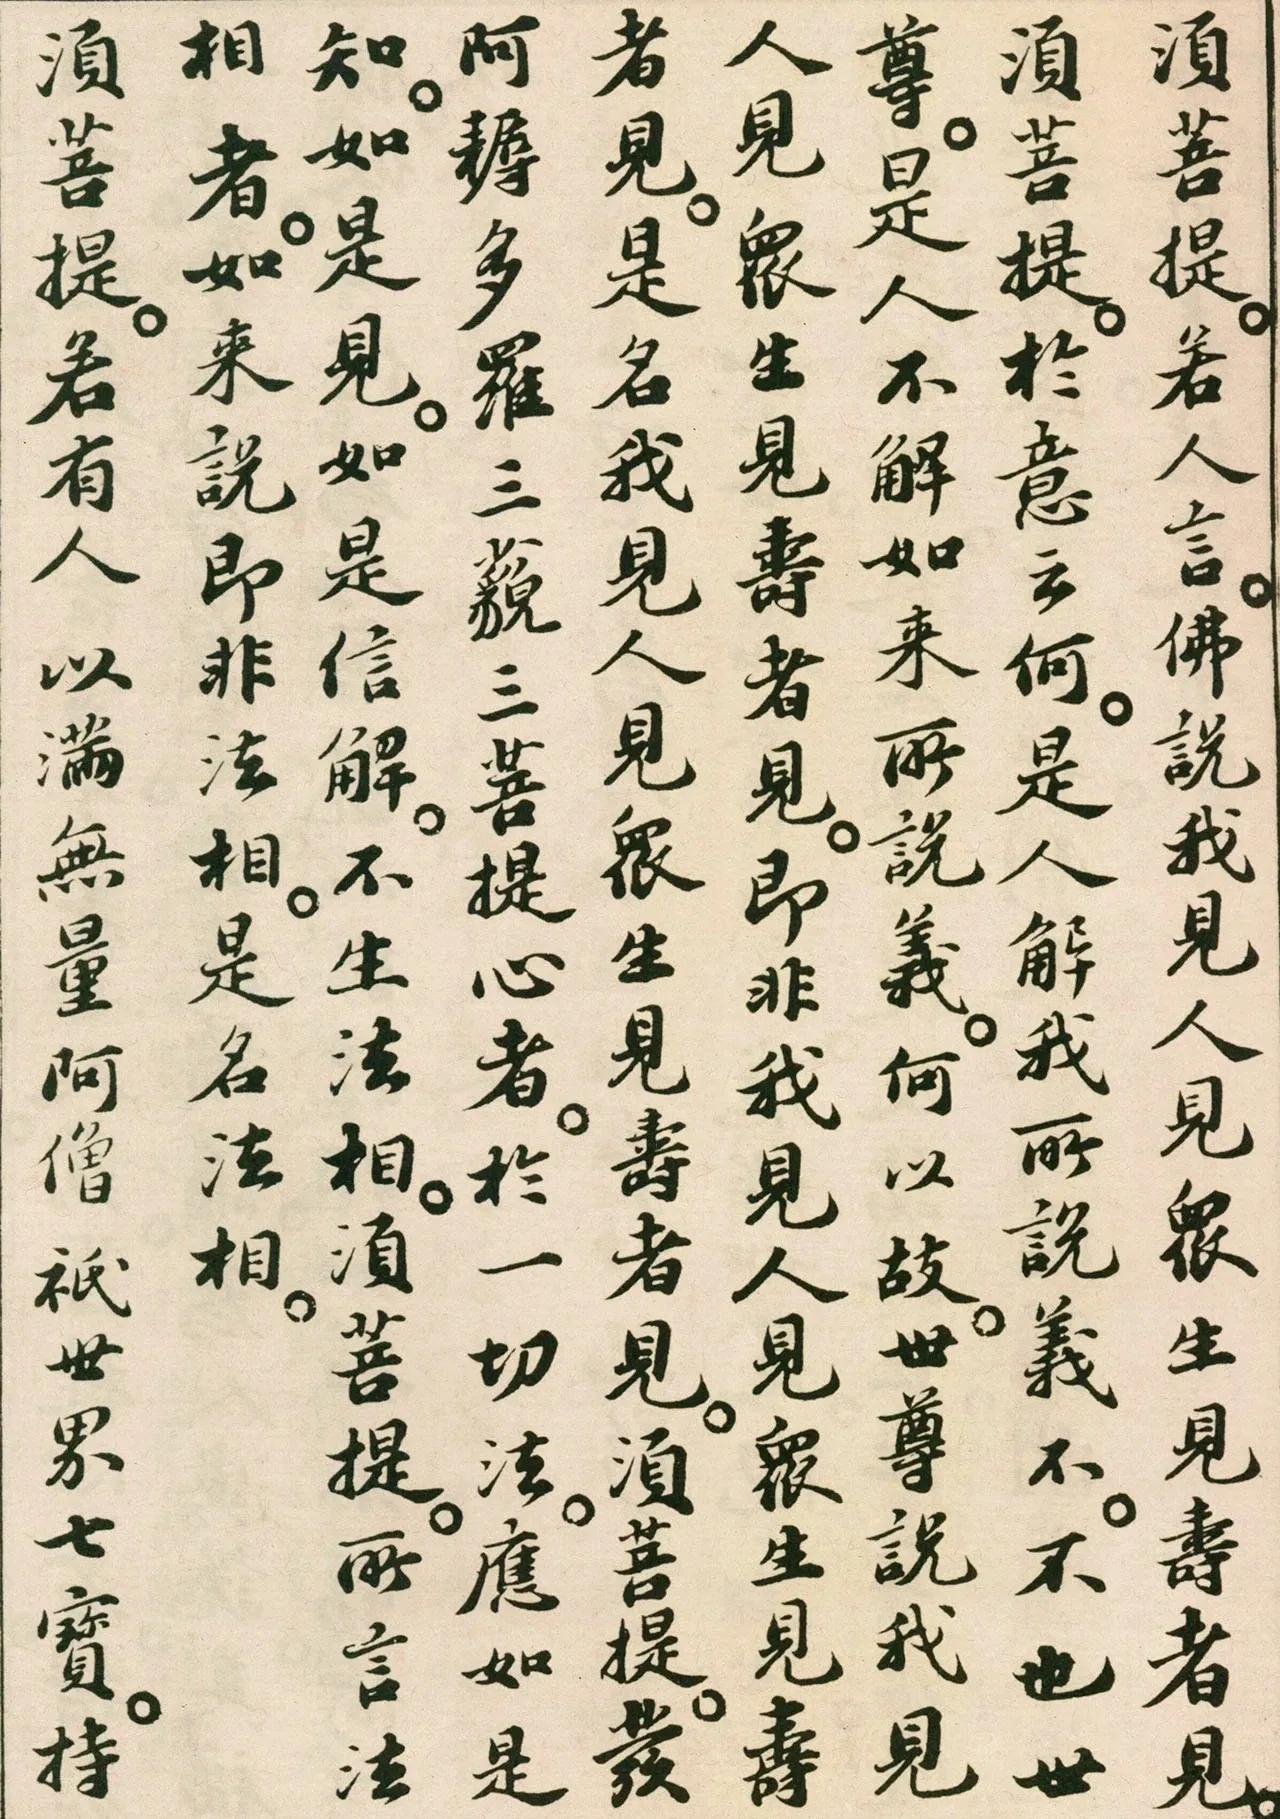 須菩提。若人言。佛說我見人見眾生見壽者見。
須菩提。於意云何。是人解我所說義不。不也世
尊。是人不解如来所說義。何以故。世尊說我見
人見眾生見壽者見。即非我見人見眾生見壽
者見。是名我見人見眾生見壽者見。須菩提。發
阿耨多羅三藐三菩提心者。於一切法。應如是
知。如是見。如是信解。不生法相。須菩提。所言法
相者。如来說即非法相。是名法相。
須菩提。若有人以滿無量阿僧祇世界七寶。持